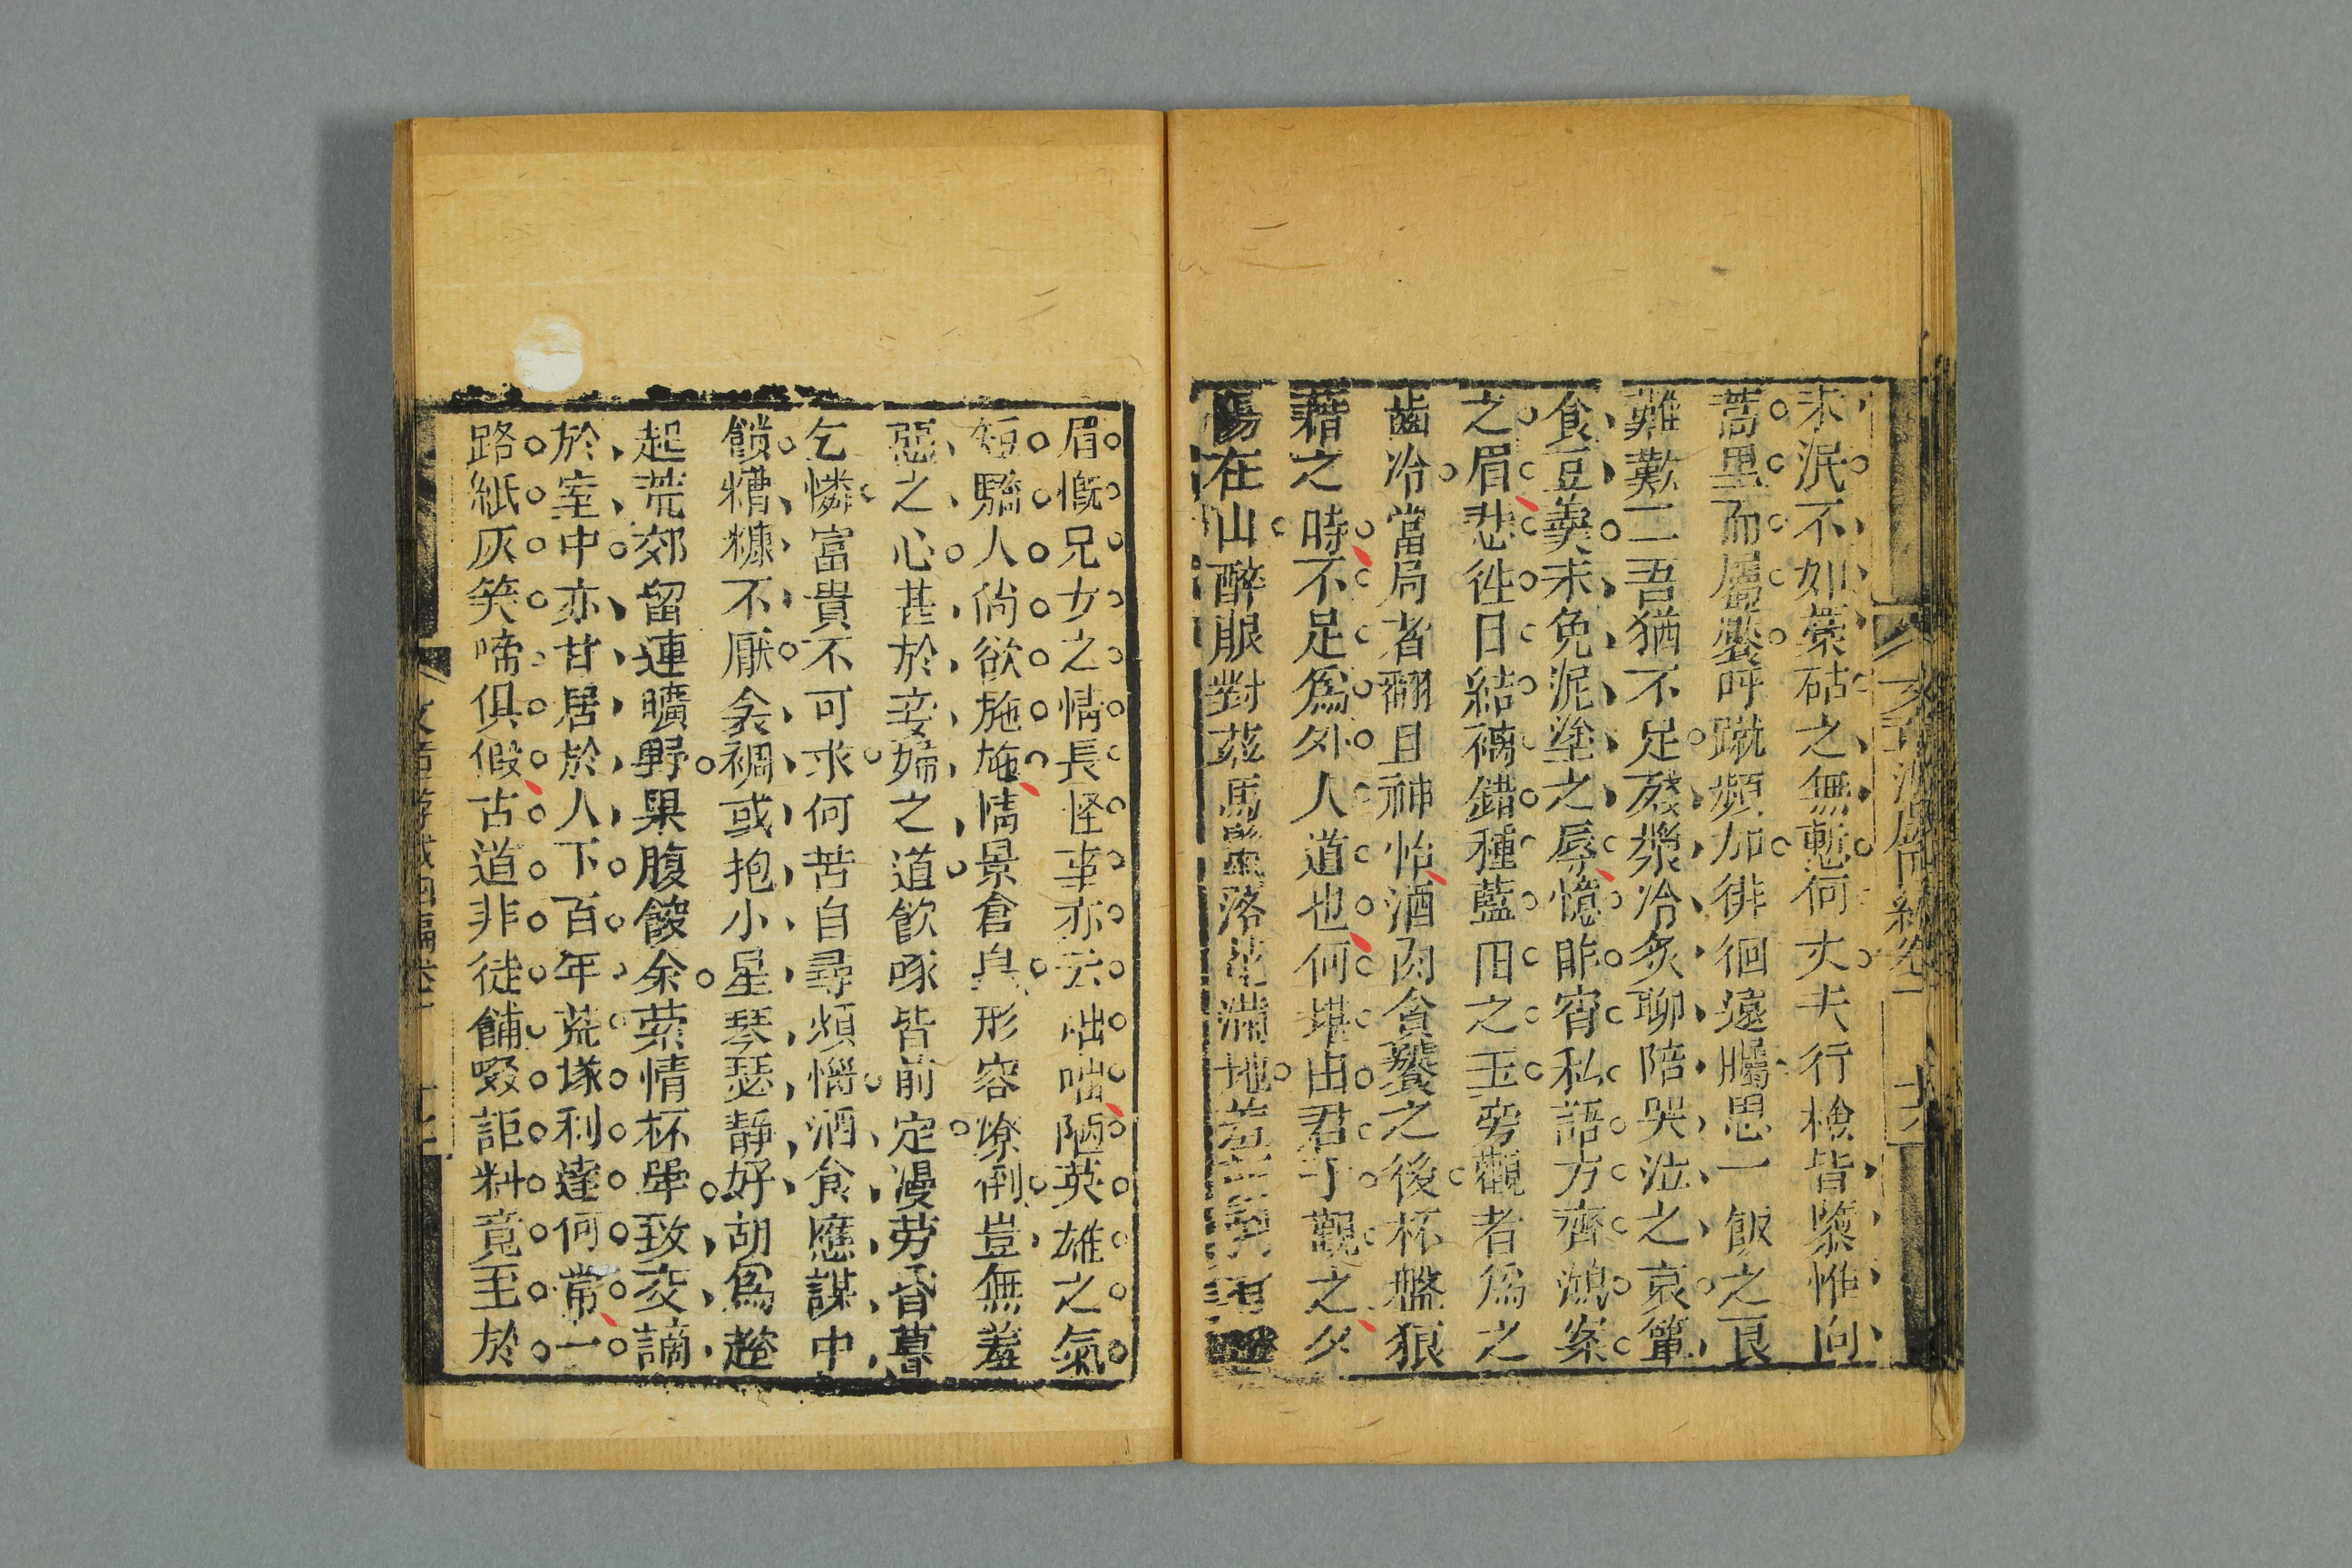 未泯不如藁砧之無慙何丈夫行檢皆隳惟向
蒿里而屬饜呼蹴頻加徘徊遠矚思一飯之艮
難歎二吾猶不足殘漿冷炙聊陪哭泣之哀簞
食豆羮未免泥塗之辱憶昨宵私語方齊鴻案
之眉悲徃日結褵錯種藍田之玉旁觀者爲之
齒冷當局者翻且神怡酒肉貪饕之後杯盤狼
藉之時不足爲外人道也何堪由君子觀之夕
陽在山醉眼對 馬鬣落 滿地
眉慨兄女之情長怪事亦云咄咄陋英雄之氣
短驕人尙欲施施情景倉皇形容燎倒豈無羞
惡之心甚於妾婦之道飮啄皆前定漫勞昏暮
乞憐富貴不可求何苦自尋煩惱酒食應謀中
饋糟糠不厭衾裯或抱小星琴瑟靜好胡爲趦
起荒郊留連曠野果腹餕余縈情杯斝致交謫
於室中亦甘居於人下百年荒塚利達何常一
路紙灰笑啼俱假古道非徒餔啜詎料竟至於
文章游戲四編卷一 十七